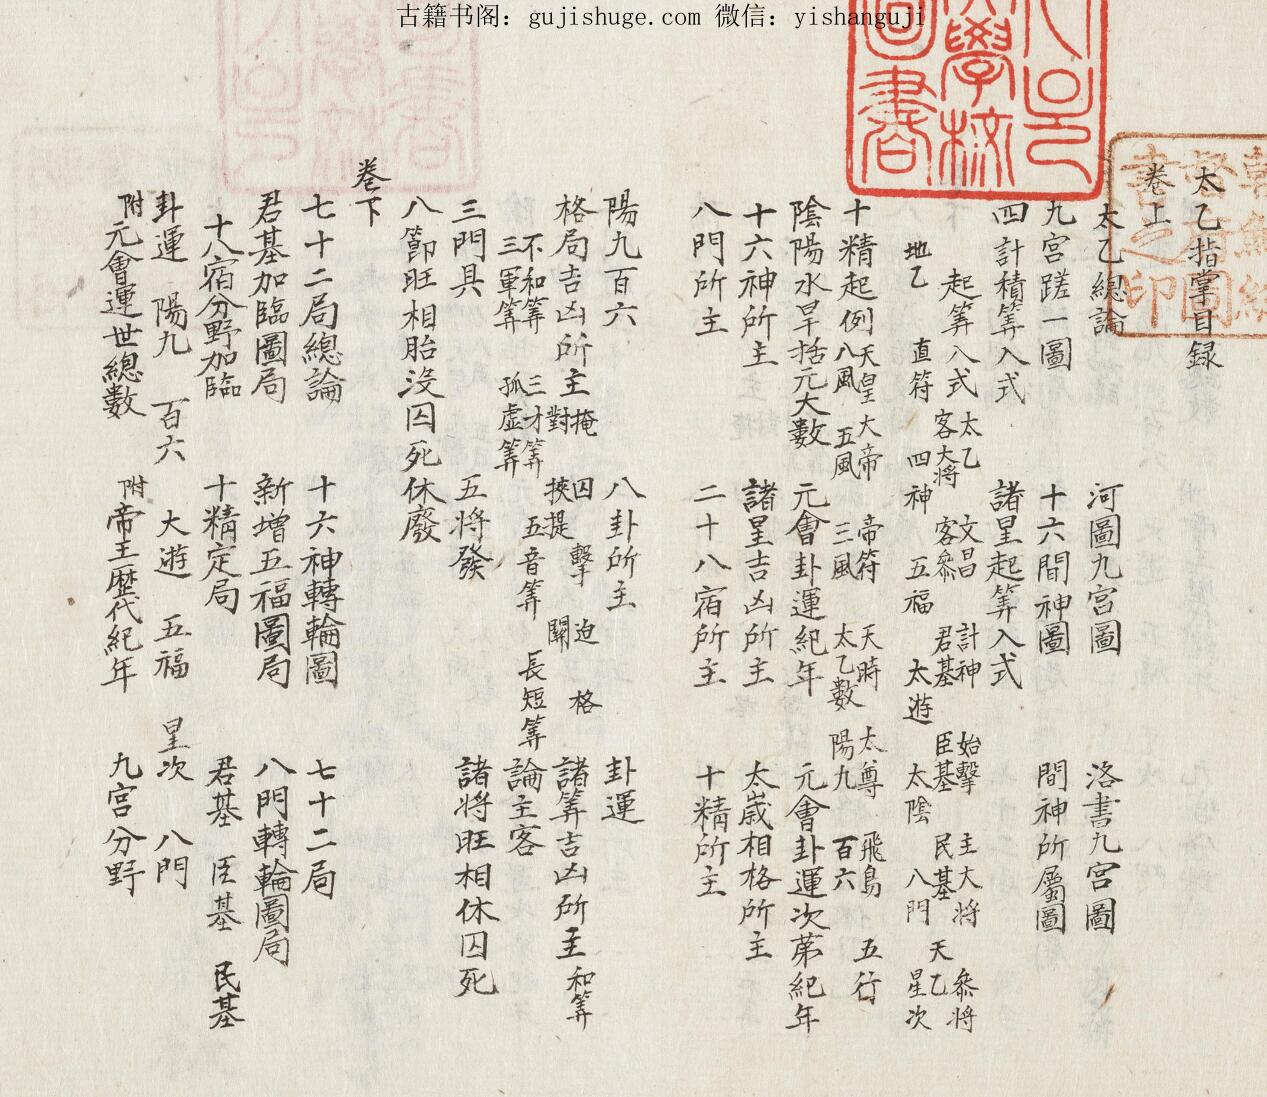 古籍书阁：gujishuge.com 微信：yishanguji
太乙指掌目録
卷上
太乙總論 河圖九宫圖 洛書九宫圖
九宫蹉一圖 十六間神圖 間神所屬圖
四計積筭入式 諸星起筭入式
起筭入式 太乙 文昌 計神 始擊 主大将 叅将
客大将 客叅 君基 臣基 民基 天乙
地乙 直符 四神 五福 太遊 太陰 八門 星次
十精起例 天皇大帝 帝符 天時 太尊 飛鳥 五行
八風 五風 三風 太乙數 陽九 百六
陰陽水旱括元大數 元會卦運紀年 元會卦運次苐紀年
十六神所主 諸星吉凶所主 太歲相格所主
八門所主 二十八宿所主 十精所主
陽九百六 八卦所主 卦運
格局吉凶所主 掩 囚 擊 迫 格
對 挾提 關
諸筭吉凶所主 和筭
不和筭 三才筭 五音筭 長短筭
三軍筭 孤虚筭
論主客
三門具 五将發 諸将旺相休囚死
八節旺相胎没囚死休廢
卷下
七十二局總論 十六神轉輪圖 七十二局
君基加臨圖局 新增五福圖局 八門轉輪圖局
十八宿分野加臨 十精定局 君基 臣基 民基
卦運 陽九 百六 大遊 五福 星次 八門
附元會運世總數 附帝王歷代紀年 九宫分野